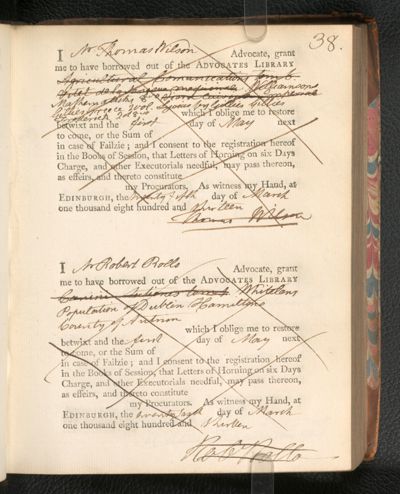 38.
I Mr Thomas Wilson Advocate, grant
me to have borrowed out of the ADVOCATES LIBRARY
Agricultural Communications tom 6.
Williamsons
Mathematicks
which I oblige me to restore
betwixt and the first day of May next
to come, or the Sum of
in case of Failzie; and I consent to the registration hereof
in the Books of Session, that Letters of Horning on six Days
Charge, and other Executorials needful, may pass thereon,
as effeirs, and thereto constitute
my Procurators. As witness my Hand, at
EDINBURGH, the twenty fifth day of March
one thousand eight hundred and thirteen
Thomas Wilson
I Mr Robert Rollo Advocate, grant
me to have borrowed out of the ADVOCATES LIBRARY
Whitelaws
Population of Dublin Hamiltons
County of Antrim
which I oblige me to restore
betwixt and the first day of May next
to come, or the Sum of
in case of Failzie; and I consent to the registration hereof
in the Books of Session, that Letters of Horning on six Days
Charge, and other Executorials needful, may pass thereon,
as effeirs, and thereto constitute
my Procurators. As witness my Hand, at
EDINBURGH, the day of March
one thousand eight hundred and thirteen
Rob Rollo